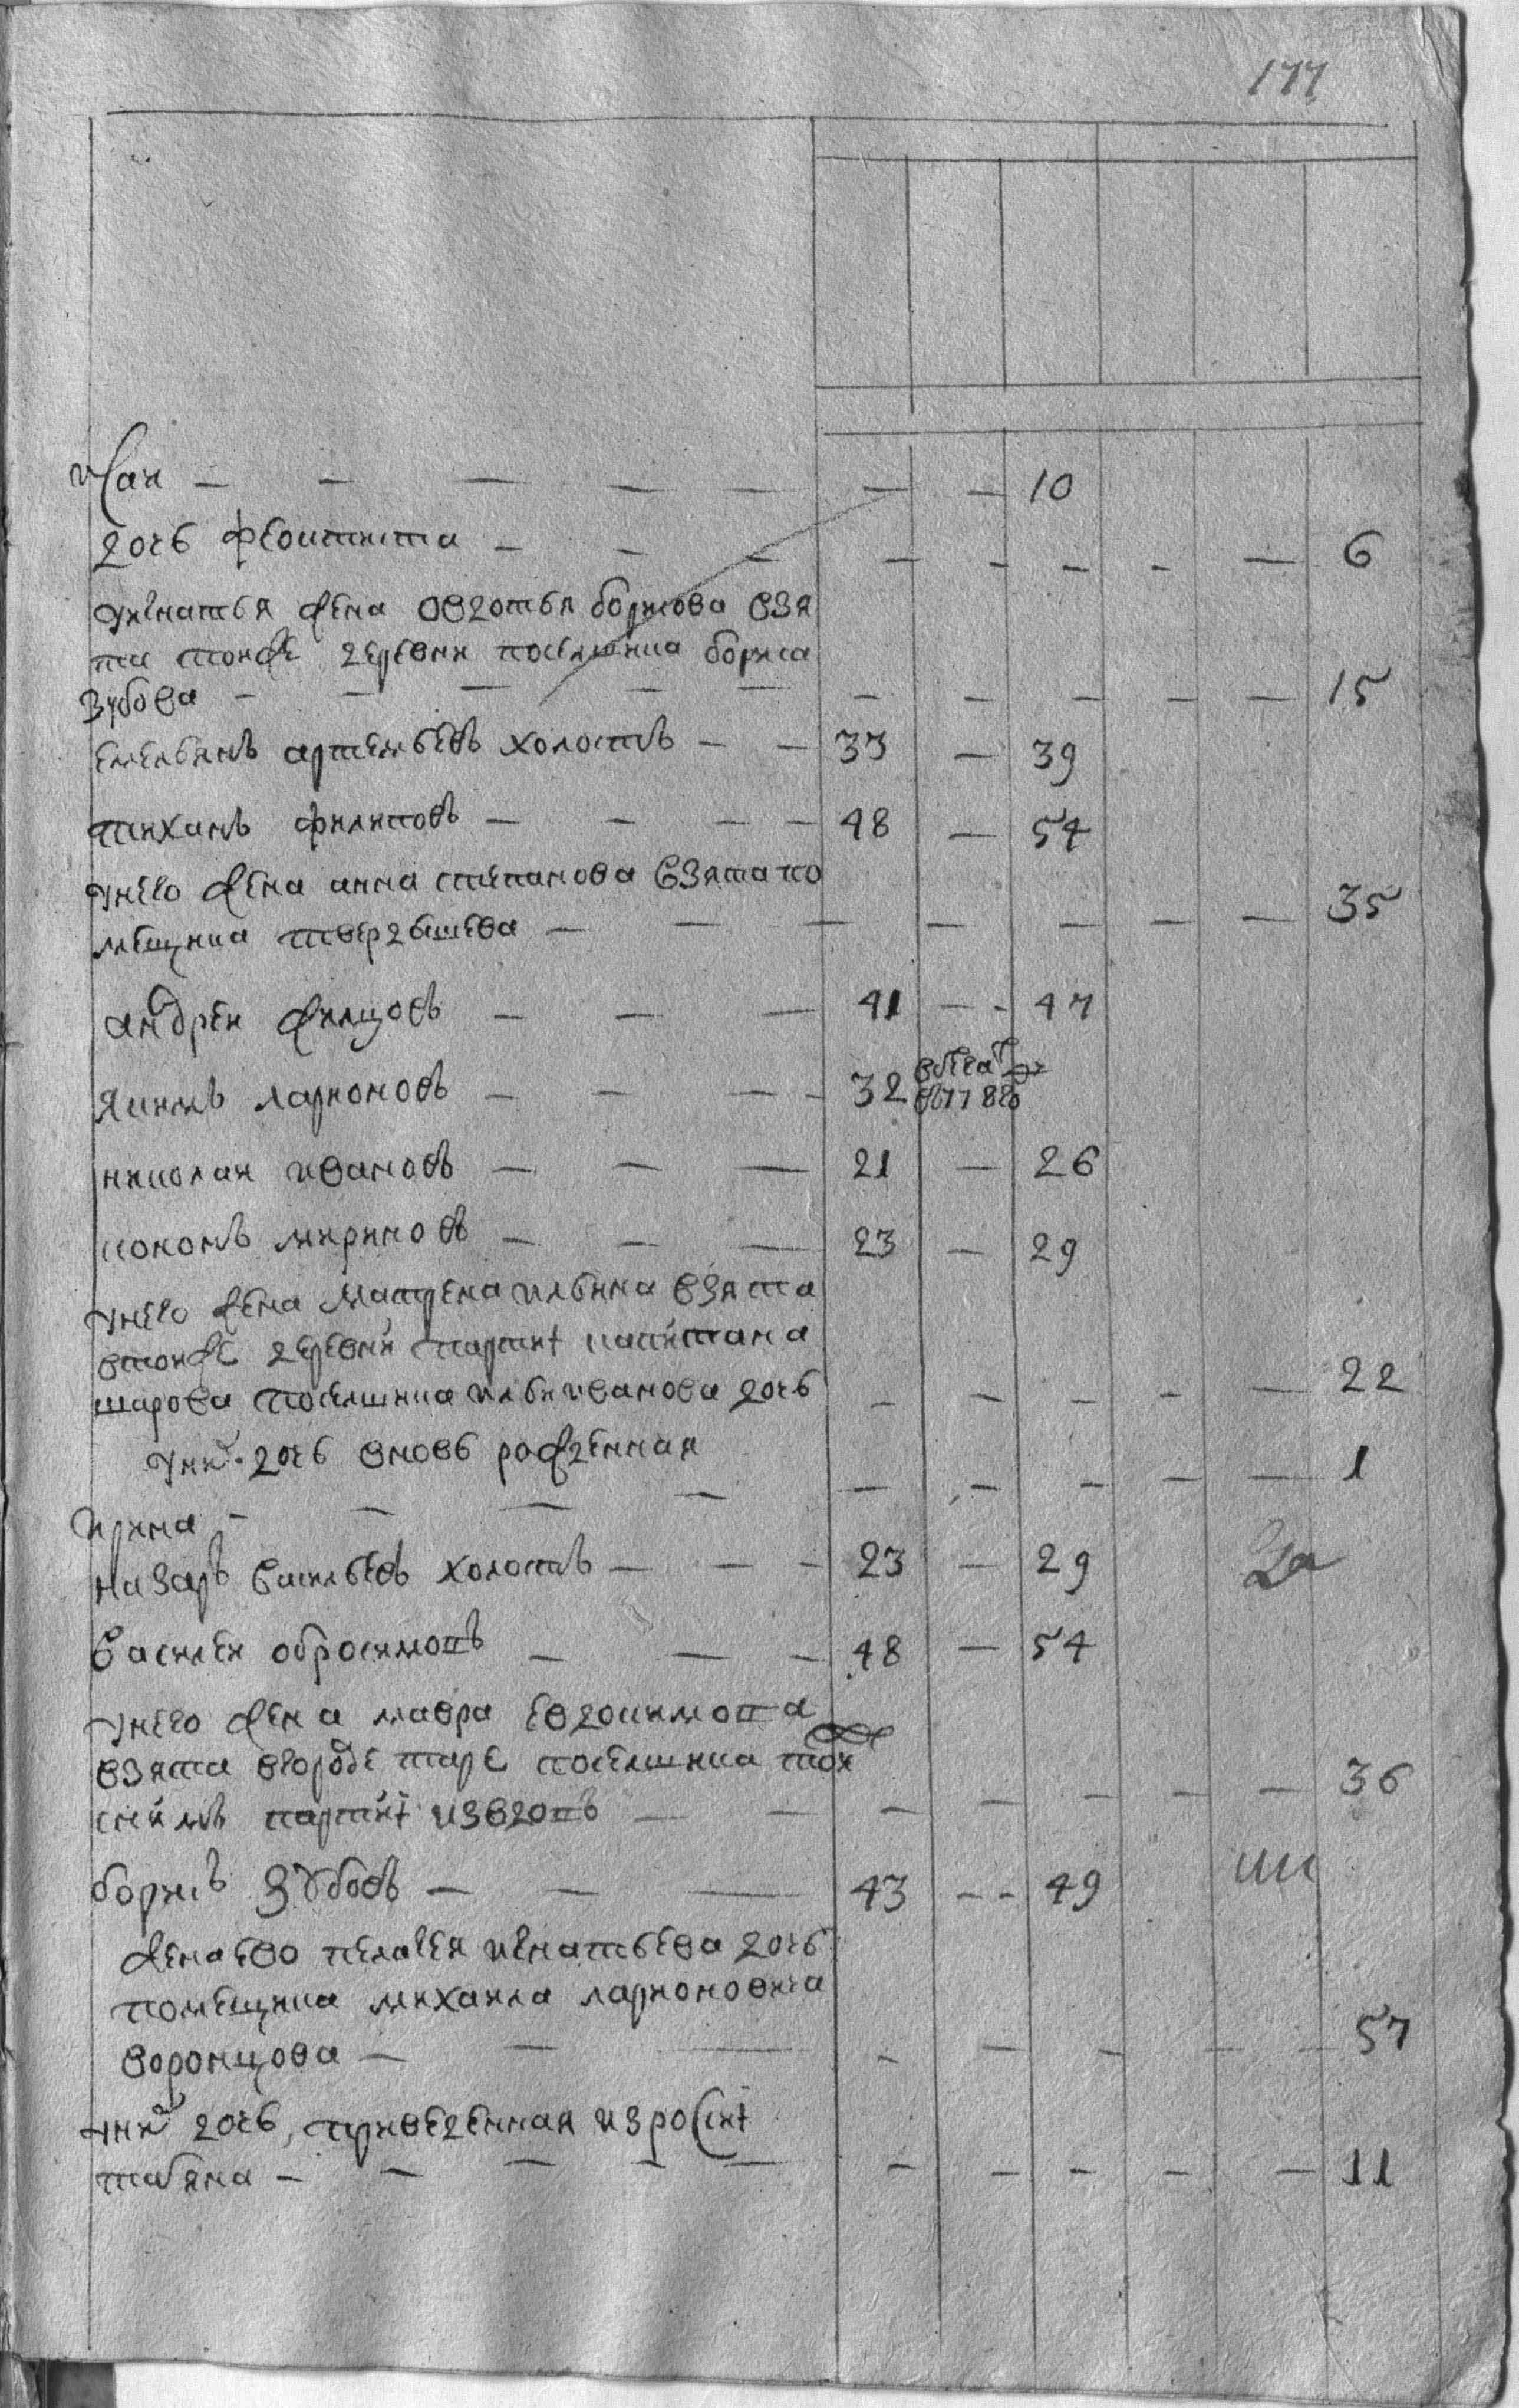 177
Исаи — — — — — — — 10
дочь феоктиста — — — — — — — — 6
Уигнатья жена овдотья борисова взя
та тоиже деревни поселшика бориса
Зубова — — — — — — — — — — 15
емельянъ артемьевъ холостъ — — 33 — 39
тиханъ филиповъ — — — — 48 — 54
Унего жена анна степанова взята по
мещика твердышева — — — — — — — — 35
андреи жилцовъ — — — 41 — - 47
якимъ ларионовъ — — — - 32 в 1788го
николаи ивановъ — — — 21 — 26
кононъ мироновъ — — — 23 — 29
Унего жена матрена ильина взята
втоиже деревни партиі капитана
шарова поселшика ильи иванова дочь — — — — — 22
Уних дочь вновь рожденная
ирина — — — — — — — — — 1
назаръ васильевъ холостъ — — - 23 — 29
василеи обросимовъ — — — 48 — 54
Унего жена мавра евдокимова
взята вгороде таре поселшика тои же
партиі — — — — — — — 36
борисъ Зубовъ — — — 43 - - 49
жена ево пелагея игнатьева дочь
помещика михаила ларионовича
воронцова — — — — — — — — 57
Уних дочь, привезенная из росиі
татьяна — — — — — — — — — — 11